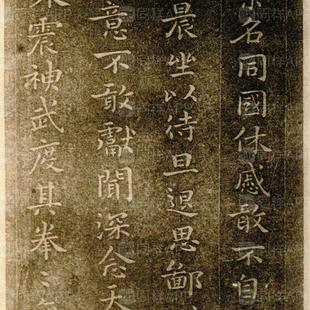 名同國休慼敢不自
晨坐以待旦退思鄙
意不敢獻聞深念天
震神武度其拳〻